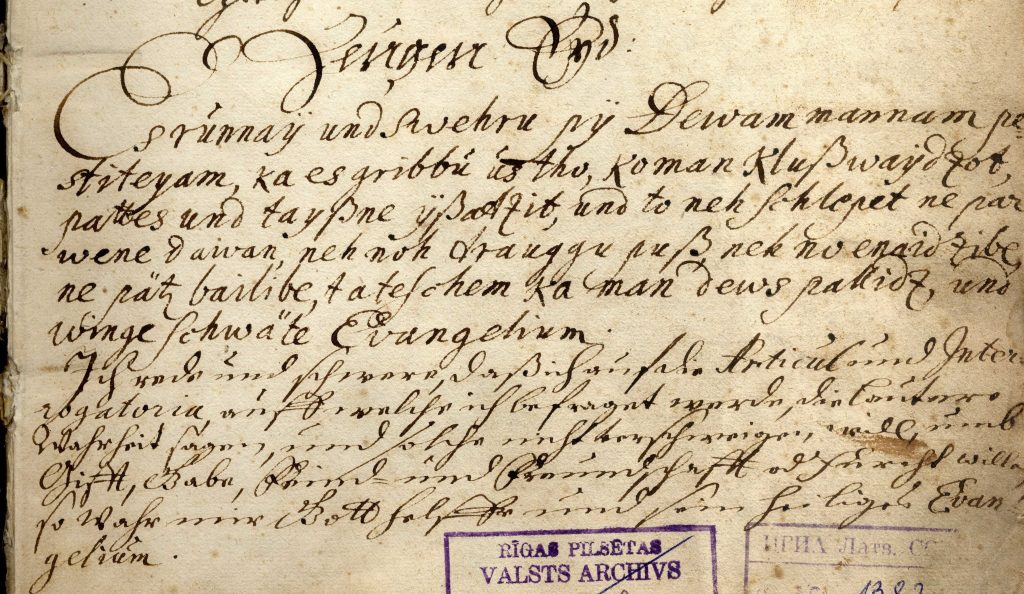 Zeugen Eyd:
Es runnay und swehru py Dewam mannam pe
stiteyam, ka es gribbu us tho, ko man klußwaydzot,
pattes und tayßne yßatzit, und to neh schlepet ne par
wene dawan, neh noh drauggu puß, neh no enaidzibe,
ne pätz bailibe, tateschem ka man dews pallidz, und
winge schwäte Evangelium.
Ich rede und schwere, daß ich auf die Articul und Inter
rogatoria, auff welche ich befraget werde, die lautere
Wahrheit sagen, und solche nicht verschweigen will, umb
Gifft, Gabe, Feind- und Freundschafft od Furcht willen
so wahr mir Gott helffe und sein heiliges Evan-
gelium.
RĪGAS PILSĒTAS
VALSTS ARCHIVS
ЦГИА Латв. СС
1382